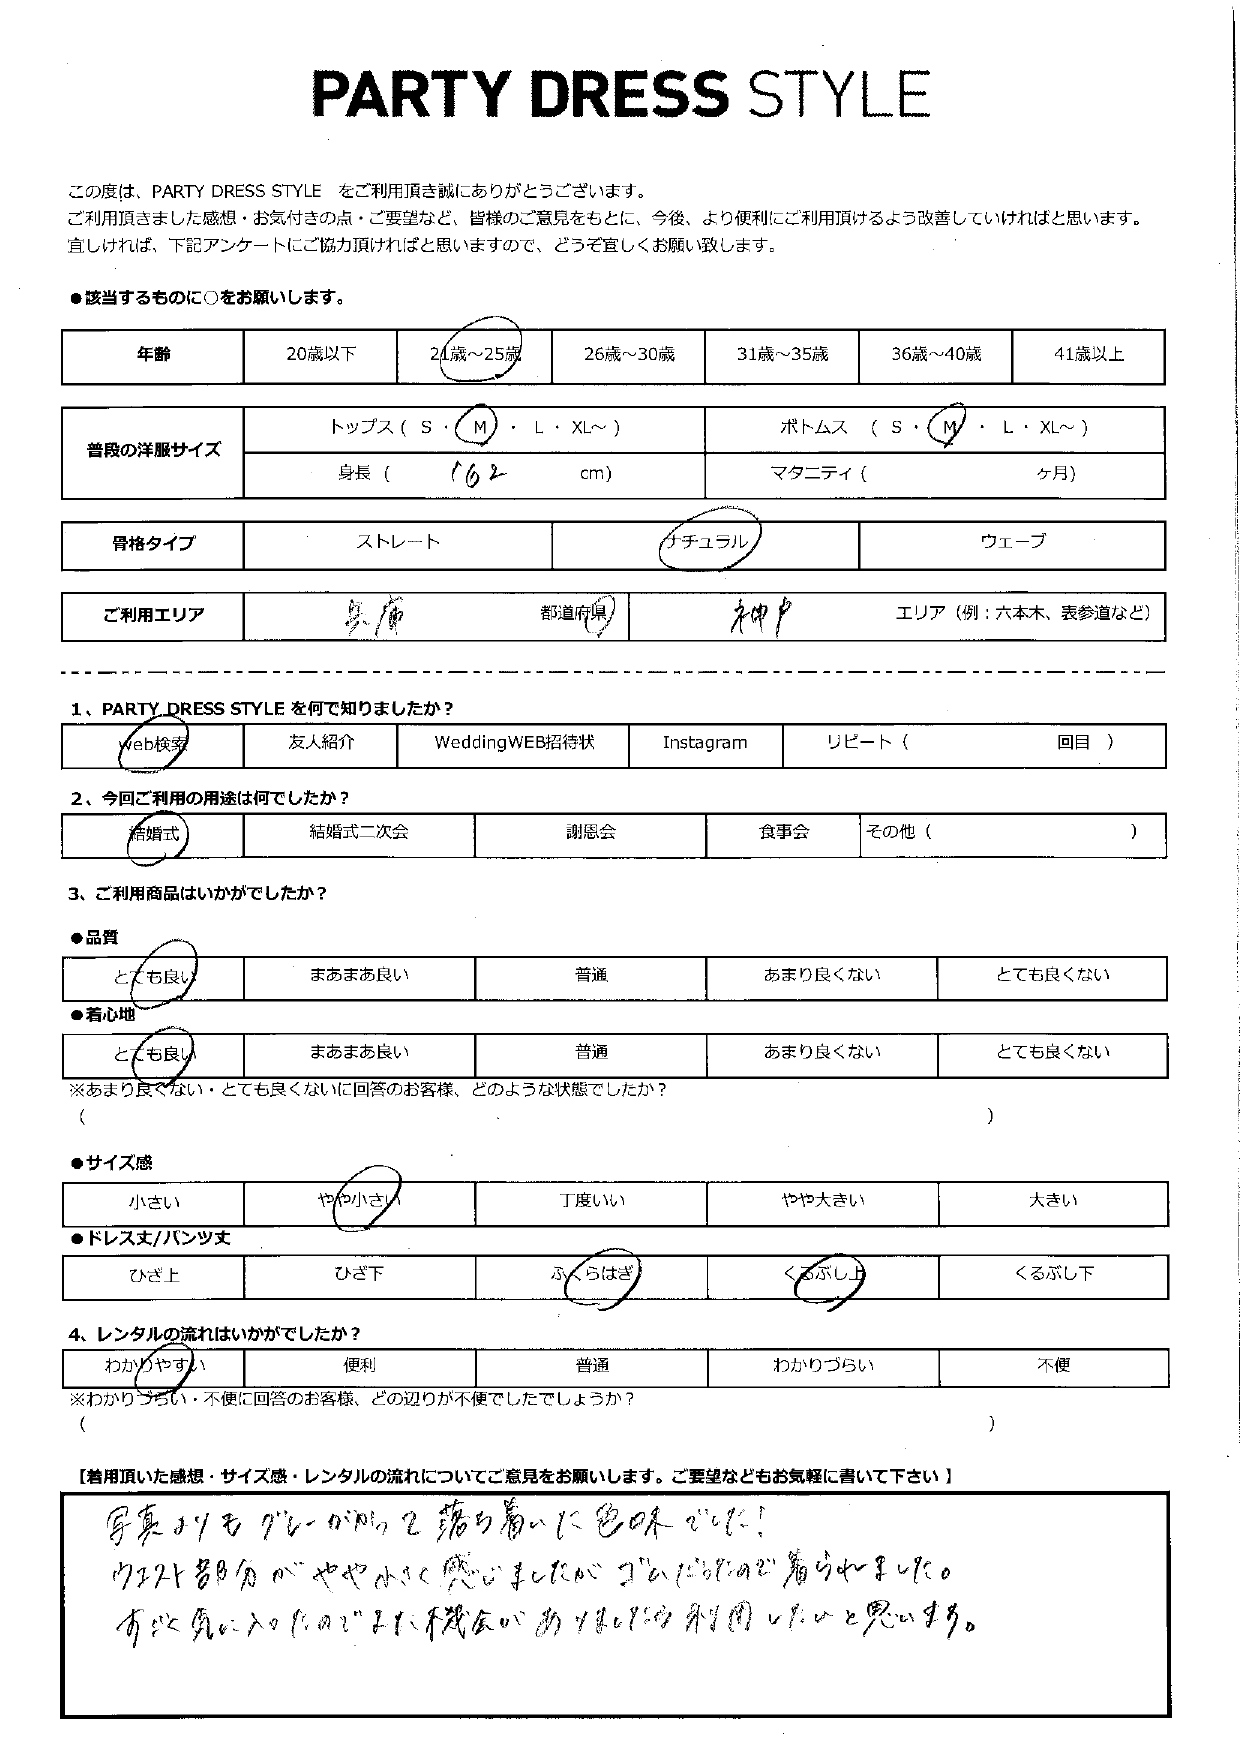 PARTY DRESS STYLE
この度は、PARTY DRESS STYLE　をご利用頂き誠にありがとうございます。
ご利用頂きました感想・お気付きの点・ご要望など、皆様のご意見をもとに、今後、より便利にご利用頂けるよう改善していければと思います。
宜しければ、下記アンケートにご協力頂ければと思いますので、どうぞ宜しくお願い致します。
●該当するものに○をお願いします。
年齢 20歳以下 21歳～25歳 26歳～30歳 31歳～35歳 36歳～40歳 41歳以上
普段の洋服サイズ トップス ( S ・ M ・ L ・ XL～ ) ボトムス ( S ・ M ・ L ・ XL～ )
身長 ( 162 cm) マタニティ ( ヶ月)
骨格タイプ ストレート ナチュラル ウェーブ
ご利用エリア 兵庫 都道府県 神戸 エリア（例：六本木、表参道など）
1、PARTY DRESS STYLE を何で知りましたか？
web検索 友人紹介 WeddingWEB招待状 Instagram リピート ( 回目 )
2、今回ご利用の用途は何でしたか？
結婚式 結婚式二次会 謝恩会 食事会 その他 ( )
3、ご利用商品はいかがでしたか？
●品質
とても良い まあまあ良い 普通 あまり良くない とても良くない
●着心地
とても良い まあまあ良い 普通 あまり良くない とても良くない
※あまり良くない・とても良くないに回答のお客様、どのような状態でしたか？
( )
●サイズ感
小さい やや小さい 丁度いい やや大きい 大きい
●ドレス丈/パンツ丈
ひざ上 ひざ下 ふくらはぎ くるぶし上 くるぶし下
4、レンタルの流れはいかがでしたか？
わかりやすい 便利 普通 わかりづらい 不便
※わかりづらい・不便に回答のお客様、どの辺りが不便でしたでしょうか？
( )
【着用頂いた感想・サイズ感・レンタルの流れについてご意見をお願いします。ご要望などもお気軽に書いて下さい 】
写真よりもグレーがかって落ち着いた色味でした！
ウエスト部分がやや小さく感じましたがゴムだったので着られました。
すごく気に入ったのでまた機会がありましたら利用したいと思います。